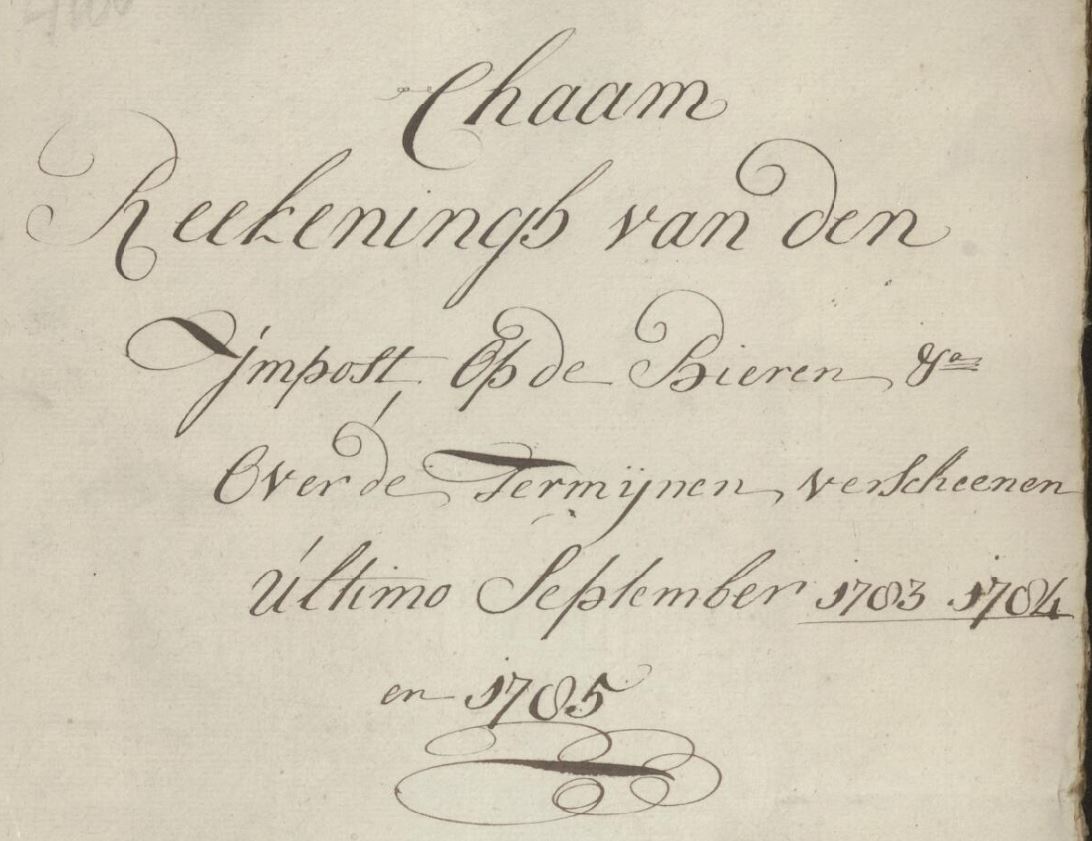 Chaam
Reekenings van den
Ympost Op de Bieren &a
Over de Termijnen verscheenen
Ultimo September 1783 1784
en 1785